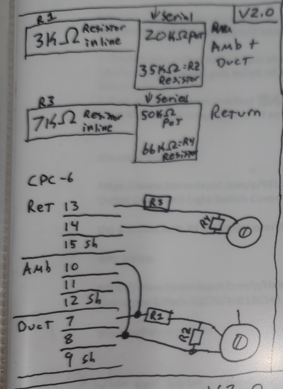 V2.0
R1
3KΩ Resistor
inline
↓ Serial
20KΩ Pot
35KΩ=R2
Resistor
Amb +
Duct
R3
7KΩ Resistor
inline
↓ Series
50KΩ
PoT
66KΩ=R4
Resistor
Return
CPC-6
Ret 13
14
15 Sh
R3
Amb 10
11
12 Sh
Duct 7
8
9 Sh
R1
R2